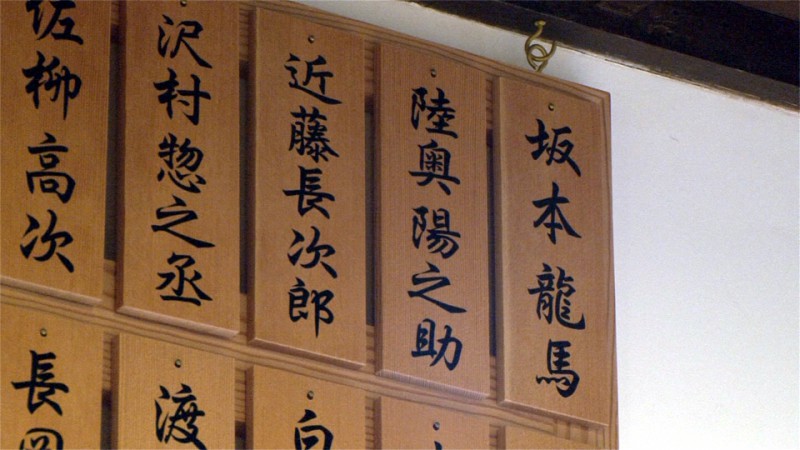 坂本龍馬
陸奥陽之助
近藤長次郎
沢村惣之丞
佐柳高次
白
渡
長岡